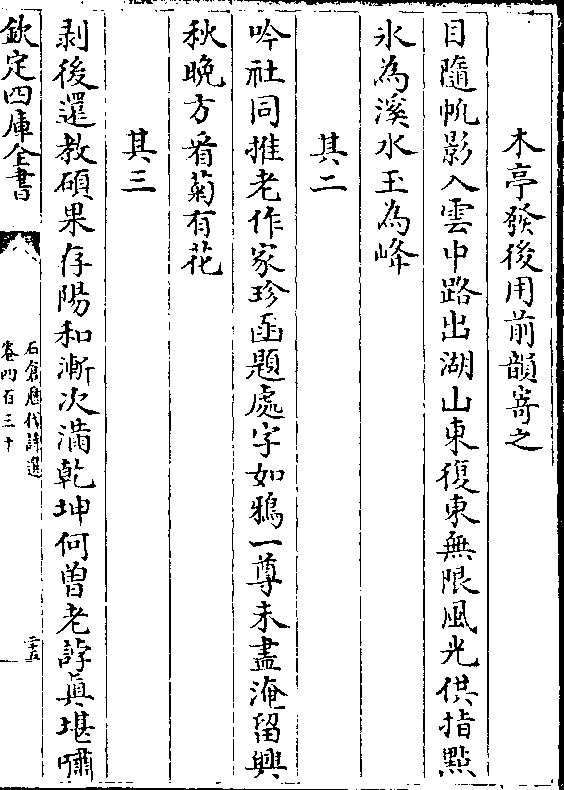 木亭發後用前韻寄之
目隨帆影入雲中路出湖山東復東無限風光供指點
氷為溪水玉為峰
其二
吟社同推老作家珍函題處字如鴉一尊未盡淹留興
秋晚方看菊有花
其三
剥後還教碩果存陽和漸次滿乾坤何曽老誖真堪嘯
欽定四庫全書
石倉歷代詩選
卷四百三十
二十五